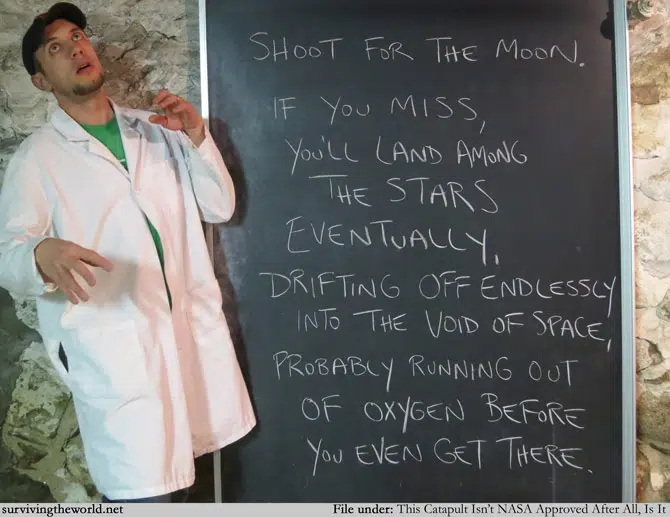 SHOOT FOR THE MOON.
IF YOU MISS,
YOU'LL LAND AMONG
THE STARS
EVENTUALLY,
DRIFTING OFF ENDLESSLY
INTO THE VOID OF SPACE,
PROBABLY RUNNING OUT
OF OXYGEN BEFORE
YOU EVEN GET THERE.
survivingtheworld.net File under: This Catapult Isn't NASA Approved After All, Is It